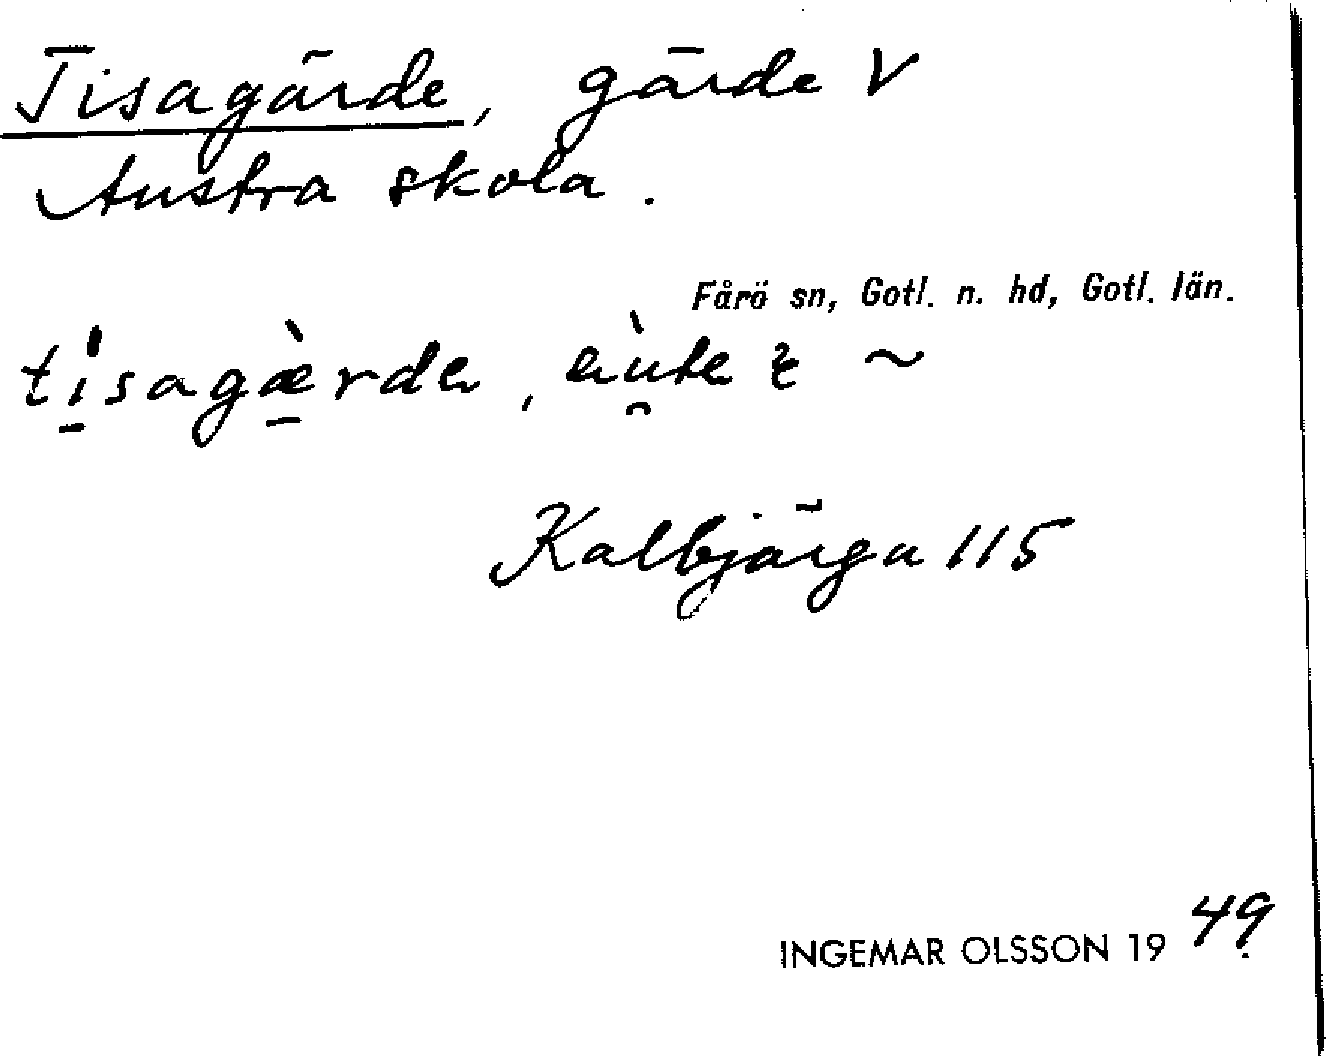 Tisagärde, gärde V
Austra skola.
Fårö sn, Gotl. n. hd, Gotl. län.
tisagærde,
Kalbjärga 115
INGEMAR OLSSON 1949